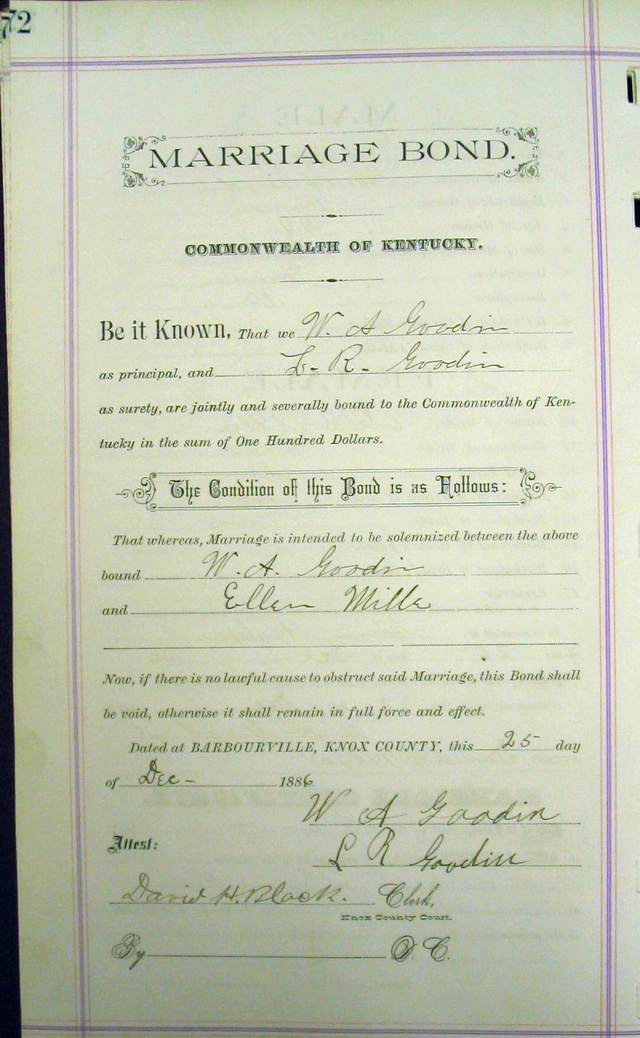 72
MARRIAGE BOND.
COMMONWEALTH OF KENTUCKY.
Be it Known, That we W. A Goodin
as principal, and L- R- Goodin
as surety, are jointly and severally bound to the Commonwealth of Ken-
tucky in the sum of One Hundred Dollars.
The Condition of this Bond is as Follows:
That whereas, Marriage is intended to be solemnized between the above
bound W. A. Goodin
and Ellen Mills
Now, if there is no lawful cause to obstruct said Marriage, this Bond shall
be void, otherwise it shall remain in full force and effect.
Dated at BARBOURVILLE, KNOX COUNTY, this 25 day
of Dec- 1886
W A Goodin
Attest:
L R Goodin
David H. Black. Clerk,
Knox County Court.
By D. C.